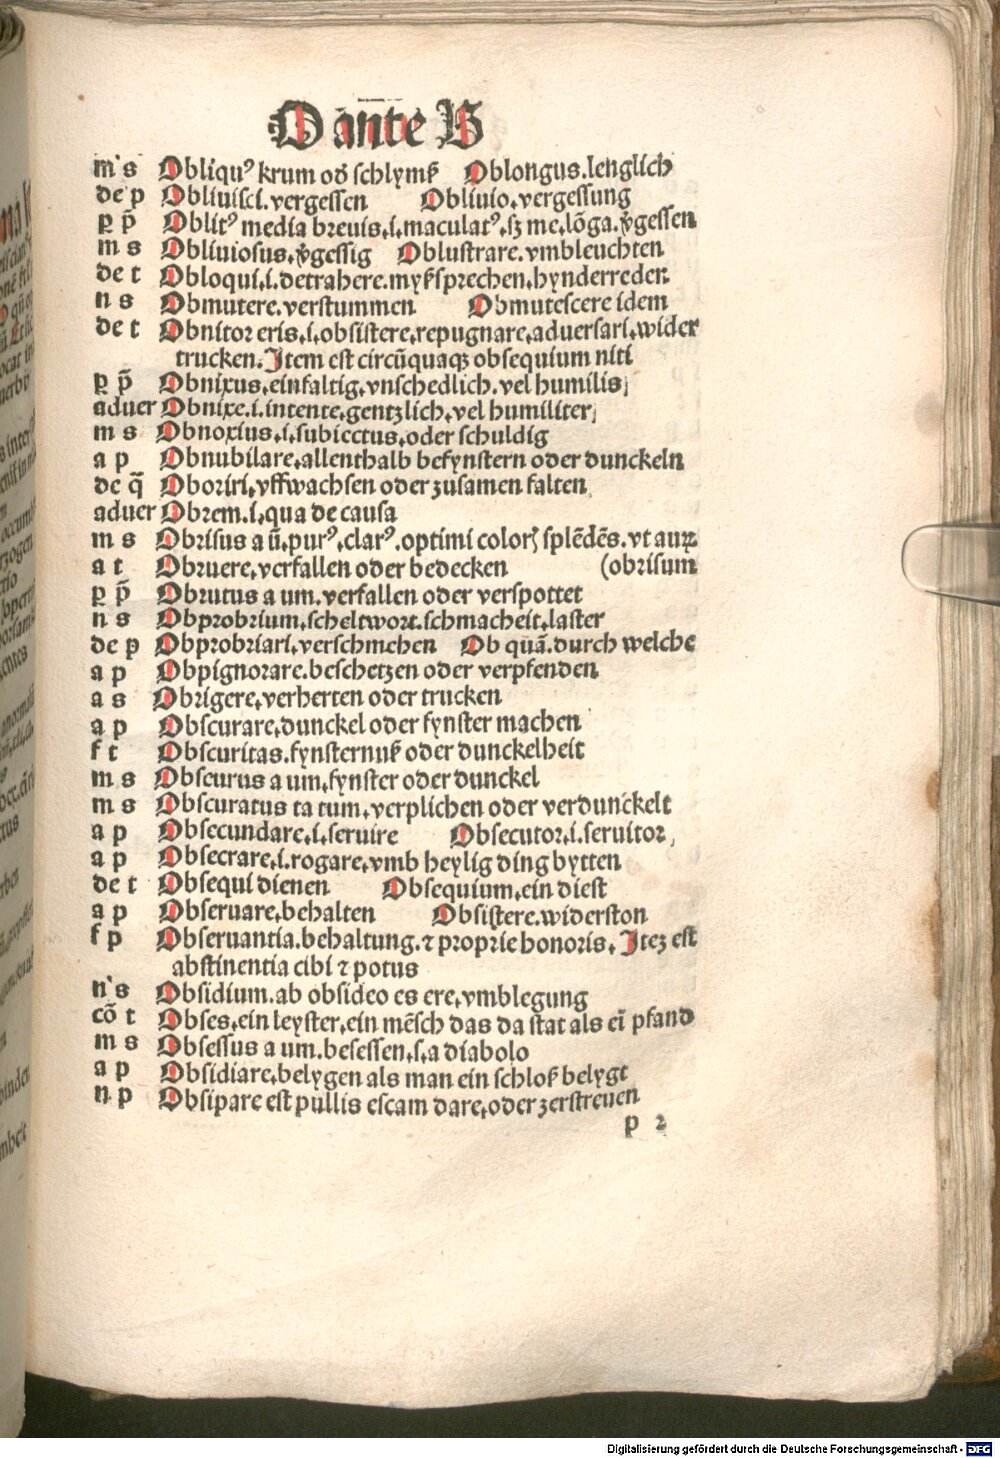 O ante B
m s Obliqu⁹ krum od̛ schlymß Oblongus.lenglich
de p Obliuisci.vergessen Obliuio.vergessung
p p̄ Oblit⁹ media breuis.i.maculat⁹.sꝫ me.lōga.v̛gessen
m s Obliuiosus.v̛gessig Oblustrare.vmbleuchten
de t Obloqui.i.detrahere.myßsprechen.hynderreden
n s Obmutere.verstummen Obmutescere idem
de t Obnitor eris.i.obsistere.repugnare.aduersari.wider
trucken.Item est circūquaqꝫ obsequium niti
p p̄ Obnixus.einfaltig.vnschedlich.vel humilis
aduer Obnixe.i.intente.gentzlich.vel humiliter
m s Obnoxius.i.subiectus.oder schuldig
a p Obnubilare.allenthalb befynstern oder dunckeln
de q̄ Oboriri.vffwachsen oder zusamen falten
aduer Obrem.i.qua de causa
m s Obrisus a ū.pur⁹.clar⁹.optimi coloꝝ splēdēs.vt auꝝ
a t Obruere.verfallen oder bedecken (obrisum
p p̄ Obrutus a um.verfallen oder verspottet
n s Obprobrium.scheltwort.schmacheit.laster
de p Obprobriari.verschmehen Ob quā.durch welche
a p Obpignorare.beschetzen oder verpfenden
a s Obrigere.verherten oder trucken
a p Obscurare.dunckel oder fynster machen
f t Obscuritas.fynsternuß oder dunckelheit
m s Obscurus a um.fynster oder dunckel
m s Obscuratus ta tum.verplichen oder verdunckelt
a p Obsecundare.i.seruire Obsecutor.i.seruitor
a p Obsecrare.i.rogare.vmb heylig ding bytten
de t Obsequi dienen Obsequium.ein diest
a p Obseruare.behalten Obsistere.widerston
f p Obseruantia.behaltung.⁊ proprie honoris. Iteꝫ est
abstinentia cibi ⁊ potus
n s Obsidium.ab obsideo es ere.vmblegung
cō t Obses.ein leyster.ein mēsch das da stat als eī pfand
m s Obsessus a um.besessen.s.a diabolo
a p Obsidiare.belygen als man ein schloß belygt
n p Obsipare est pullis escam dare.oder zerstreuen
p 2
Digitalisierung gefördert durch die Deutsche Forschungsgemeinschaft - DFG